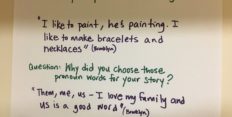 "I like to paint, he's painting. I
like to make bracelets and
necklaces" (Brooklyn)
Question: Why did you choose those
pronoun words for your story?
"Them, me, us - I love my family and
us is a good word" (Brooklyn)